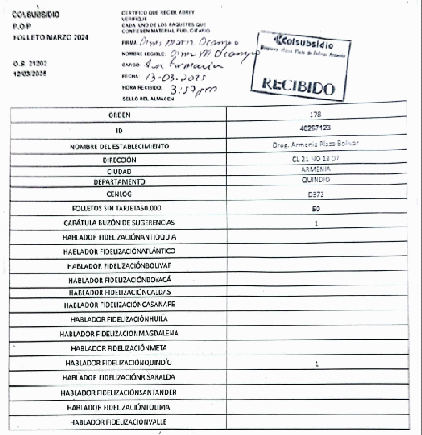 COLSUBSIDIO
P.O.P
FOLLETO MARZO 2024
O.S 21202
12/03/2025
CERTIFICO QUE RECIBI, ABRI Y
VERIFIQUE
CADA UNO DE LOS PAQUETES QUE
CONTIENEN MATERIAL PUBLICITARIO
FIRMA:
NOMBRE LEGIBLE:
CARGO:
FECHA 13-03-2025
HORA RECIBIDO: 3:59 pm
SELLO DEL ALMACEN
Colsubsidio
RECIBIDO
ORDEN 178
ID
NOMBRE DEL ESTABLECIMIENTO Drog. Armenia Plaza Bolivar
DIRECCIÓN
CIUDAD ARMENIA
DEPARTAMENTO QUINDIO
CENLOG D372
FOLLETOS SIN TARJETAS 0.000 50
CARÁTULA BUZÓN DE SUGERENCIAS 1
HABLADOR FIDELIZACIÓN ANTIOQUIA
HABLADOR FIDELIZACIÓN ATLÁNTICO
HABLADOR FIDELIZACIÓN BOLIVAR
HABLADOR FIDELIZACIÓN BOYACÁ
HABLADOR FIDELIZACIÓN CALDAS
HABLADOR FIDELIZACIÓN CASANARE
HABLADOR FIDELIZACIÓN HUILA
HABLADOR FIDELIZACION MAGDALENA
HABLADOR FIDELIZACIÓN META
HABLADOR FIDELIZACIÓN QUINDÍO 1
HABLADOR FIDELIZACIÓN RISARALDA
HABLADOR FIDELIZACIÓN SANTANDER
HABLADOR FIDELIZACIÓN TOLIMA
HABLADOR FIDELIZACIÓN VALLE